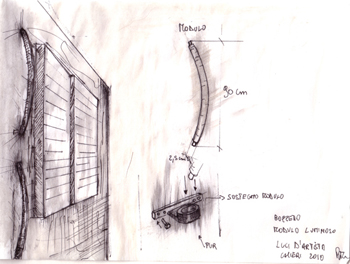 MODULO
90 cm
2,5 mm
SOSTEGNO MODULO
PVR
BOZZETTO
MODULO LUMINOSO
LUCI D'ARTISTA
2010